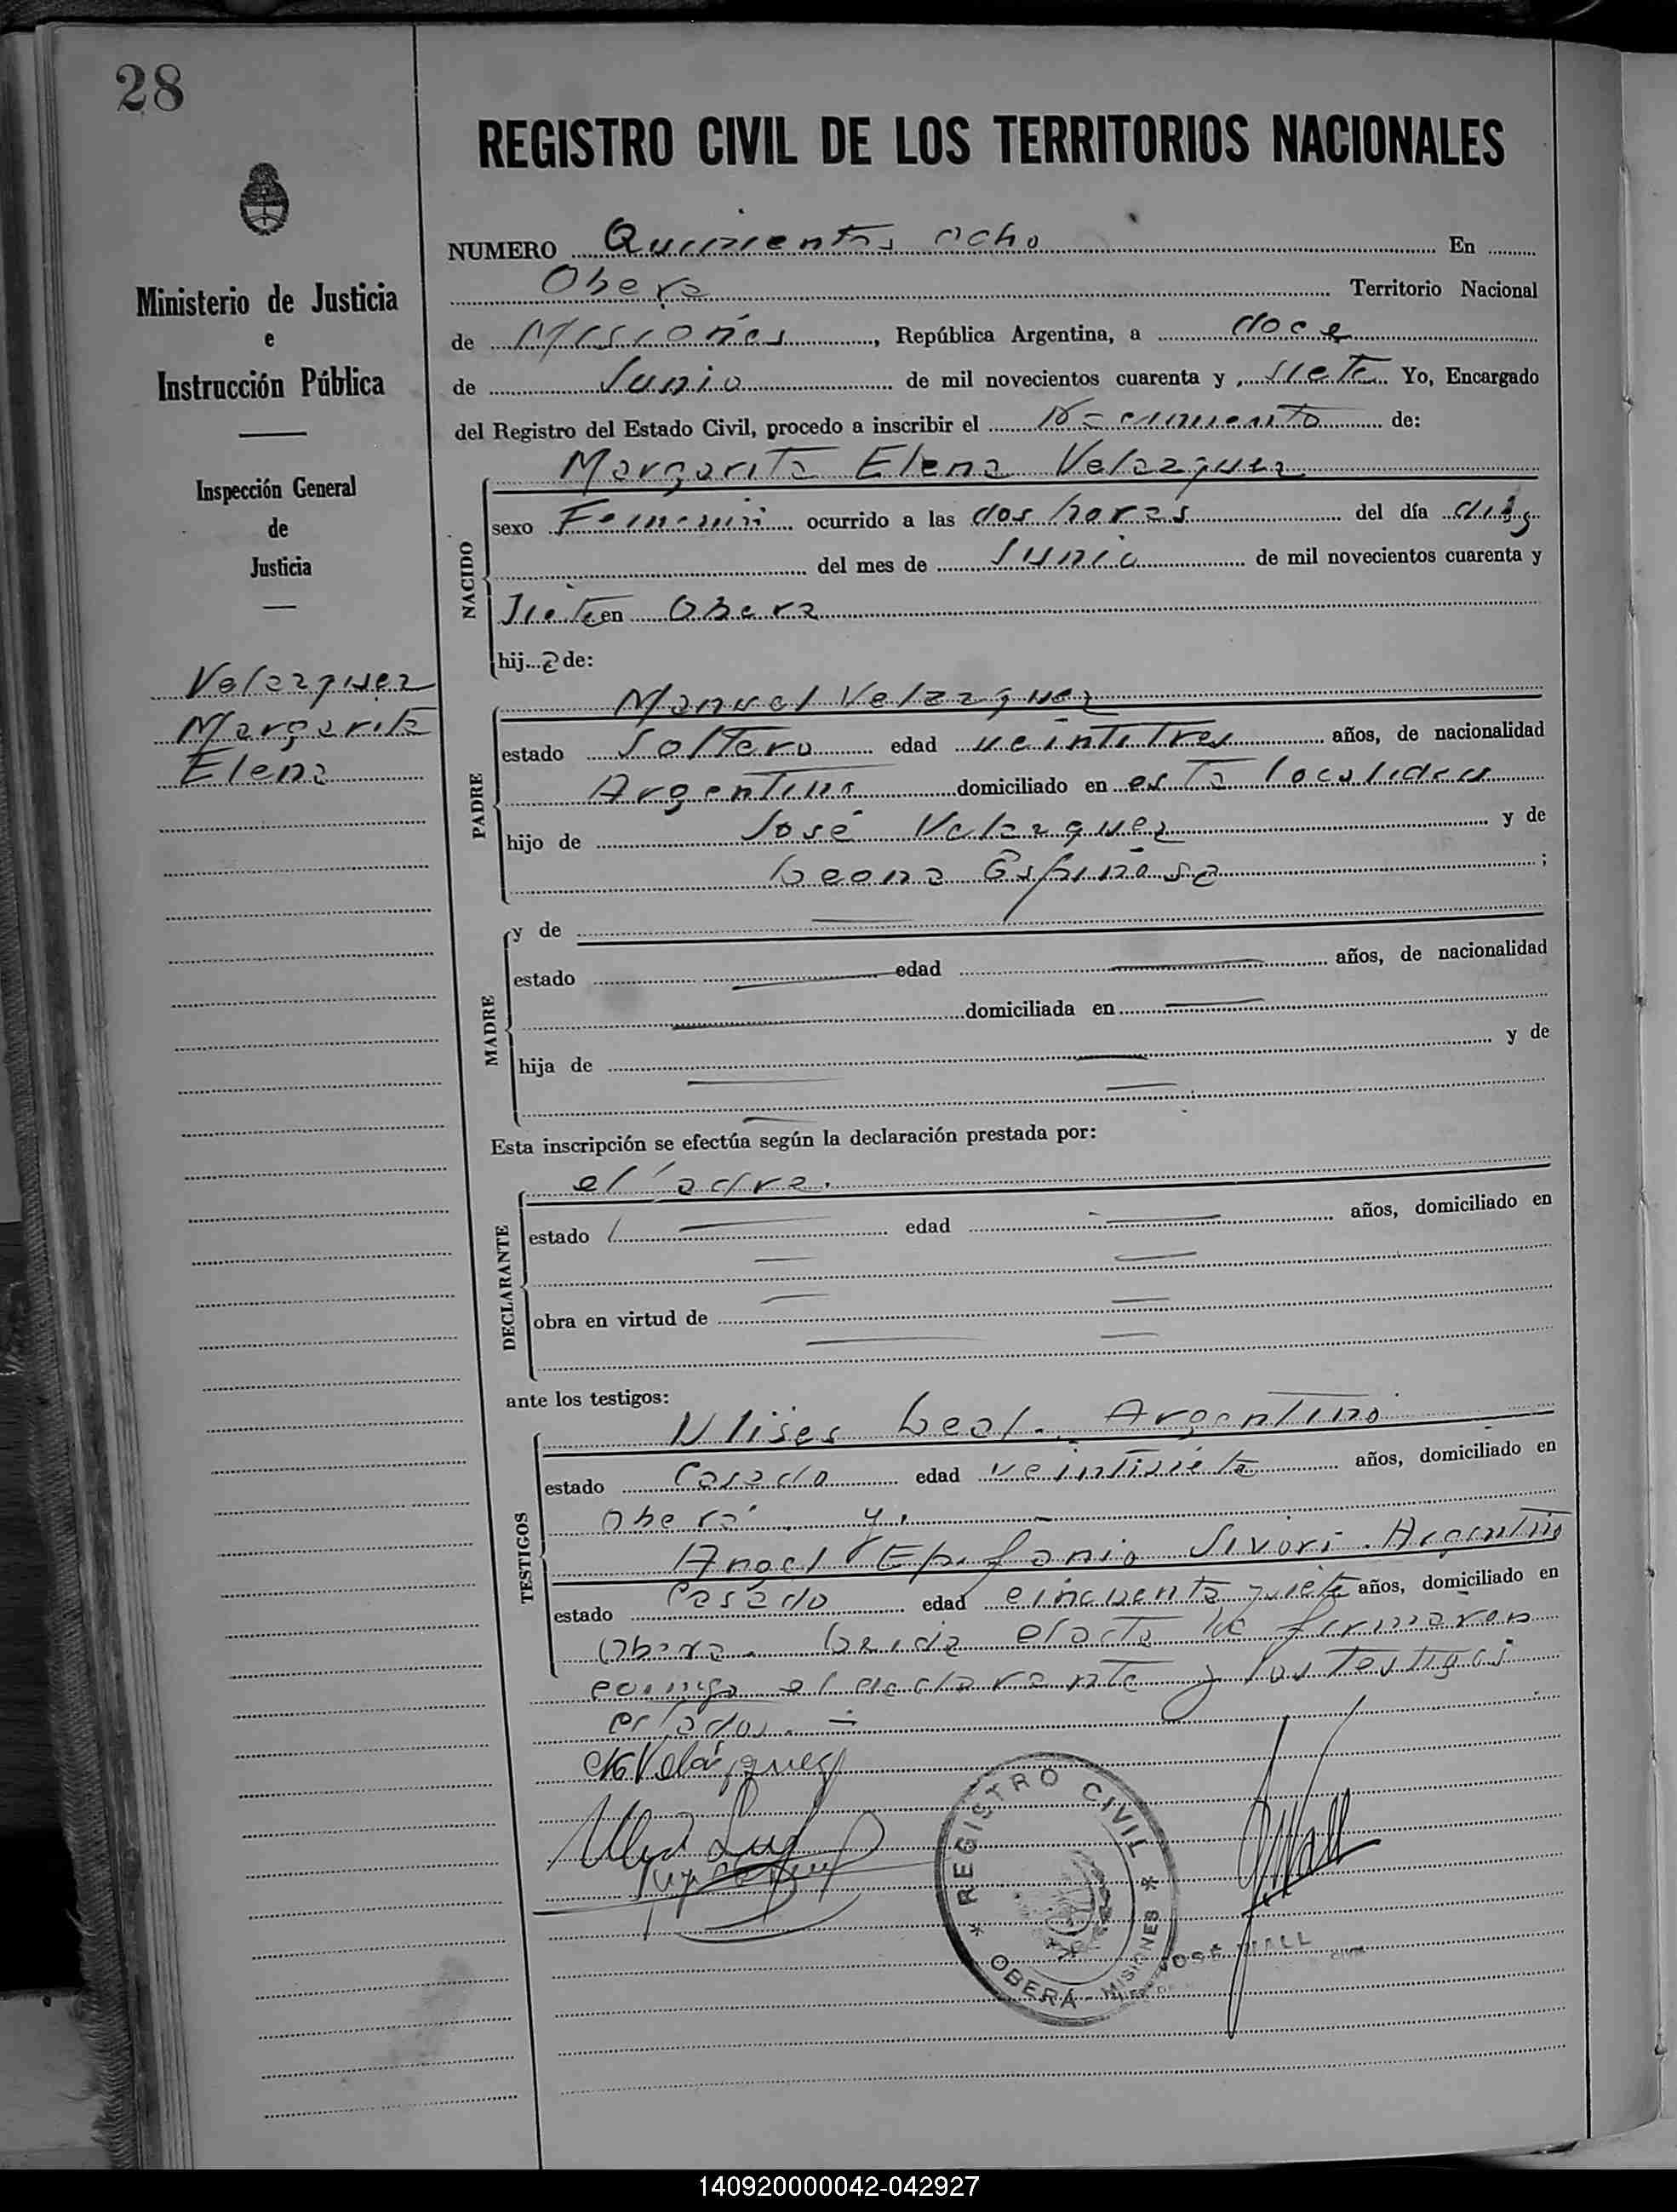 28
REGISTRO CIVIL DE LOS TERRITORIOS NACIONALES
Ministerio de Justicia
e
Instrucción Pública
Inspección General
de
Justicia
Velazquez
Margarita
Elena
NUMERO Quinientos ocho En
Obera Territorio Nacional
de Misiones, República Argentina, a doce
de Junio de mil novecientos cuarenta y siete Yo, Encargado
del Registro del Estado Civil, procedo a inscribir el Nacimiento de:
Margarita Elena Velazquez
NACIDO
sexo Femenino ocurrido a las dos horas del día diez
del mes de Junio de mil novecientos cuarenta y
siete en Obera
hij a de:
PADRE
Manuel Velazquez
estado Soltero edad veintitres años, de nacionalidad
Argentino domiciliado en esta localidad
hijo de José Velazquez y de
Leona Espinosa ;
MADRE
y de
estado edad años, de nacionalidad
domiciliada en
hija de y de
Esta inscripción se efectúa según la declaración prestada por:
DECLARANTE
el padre.
estado edad años, domiciliado en
obra en virtud de
ante los testigos:
TESTIGOS
Ulises Leal. Argentino
estado Casado edad veintisiete años, domiciliado en
Oberá y.
Angel Epifanio Sivori. Argentino
estado Casado edad cincuenta y siete años, domiciliado en
Obera. Leida el acta la firmaron
conmigo el declarante y los testigos
citados. -
M Velázquez
REGISTRO CIVIL
OBERÁ - MISIONES
JOSE WALL
140920000042-042927